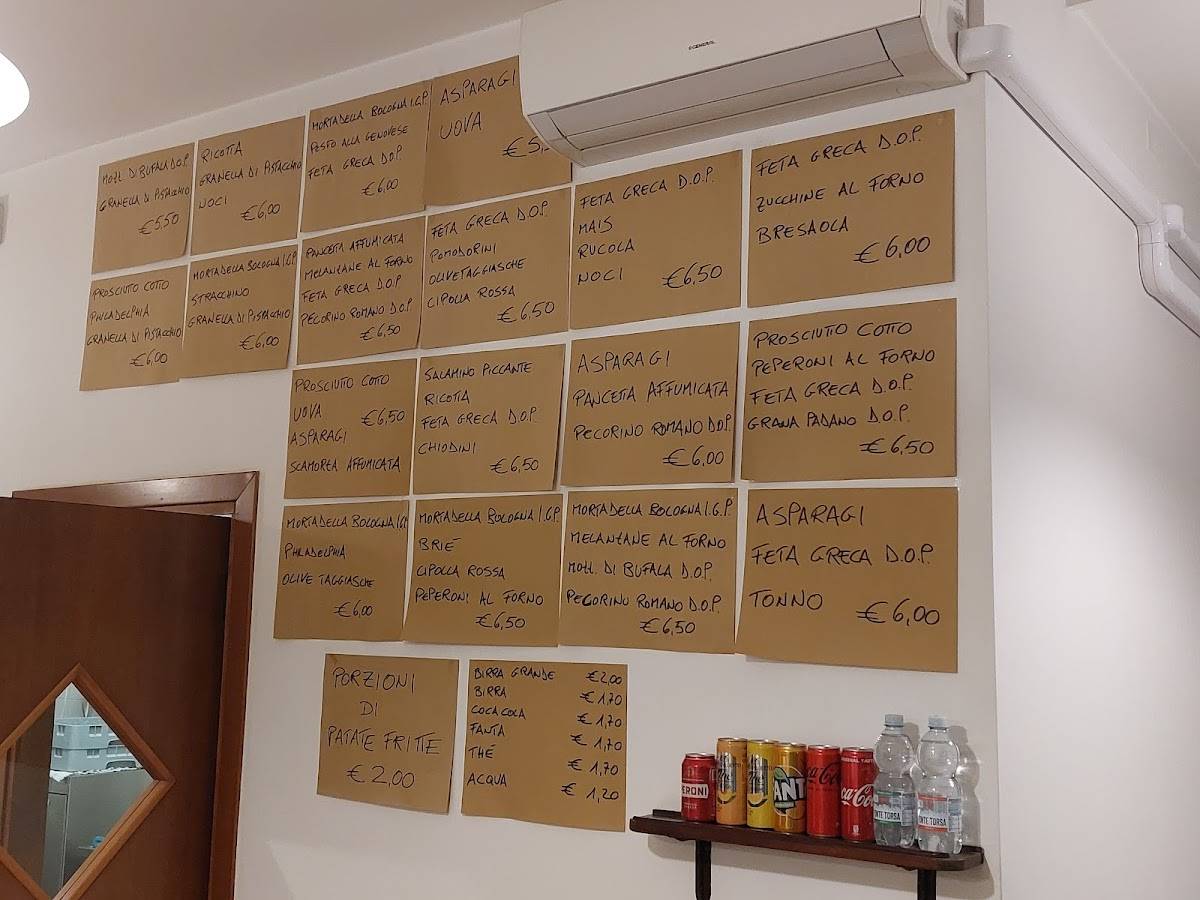 GENERAL
MOZZ. DI BUFALA D.O.P.
GRANELLA DI PISTACCHIO
€5,50
RICOTTA
GRANELLA DI PISTACCHIO
NOCI
€6,00
MORTADELLA BOLOGNA I.G.P
PESTO ALLA GENOVESE
FETA GRECA D.O.P.
€6,00
ASPARAGI
UOVA
FETA GRECA D.O.P.
MAIS
RUCOLA
NOCI
€6,50
FETA GRECA D.O.P.
ZUCCHINE AL FORNO
BRESAOLA
€6,00
PROSCIUTTO COTTO
PHILADELPHIA
GRANELLA DI PISTACCHIO
€6,00
MORTADELLA BOLOGNA I.G.P
STRACCHINO
GRANELLA DI PISTACCHIO
€6,00
PANCETTA AFFUMICATA
MELANZANE AL FORNO
FETA GRECA D.O.P.
PECORINO ROMANO D.O.P.
€6,50
FETA GRECA D.O.P.
POMODORINI
OLIVE TAGGIASCHE
CIPOLLA ROSSA
€6,50
PROSCIUTTO COTTO
UOVA €6,50
ASPARAGI
SCAMORZA AFFUMICATA
SALAMINO PICCANTE
RICOTTA
FETA GRECA D.O.P.
CHIODINI
€6,50
ASPARAGI
PANCETTA AFFUMICATA
PECORINO ROMANO D.O.P.
€6,00
PROSCIUTTO COTTO
PEPERONI AL FORNO
FETA GRECA D.O.P.
GRANA PADANO D.O.P.
€6,50
MORTADELLA BOLOGNA I.G.P
PHILADELPHIA
OLIVE TAGGIASCHE
€6,00
MORTADELLA BOLOGNA I.G.P.
BRIÉ
CIPOLLA ROSSA
PEPERONI AL FORNO
€6,50
MORTADELLA BOLOGNA I.G.P.
MELANZANE AL FORNO
MOZZ. DI BUFALA D.O.P.
PECORINO ROMANO D.O.P.
€6,50
ASPARAGI
FETA GRECA D.O.P.
TONNO €6,00
PORZIONI
DI
PATATE FRITTE
€2,00
BIRRA GRANDE €2,00
BIRRA €1,70
COCA COLA €1,70
FANTA €1,70
THÉ €1,70
ACQUA €1,20
PERONI
FANT
Coca-Cola
Coca-Cola
NTE TORSA
NTE TORSA